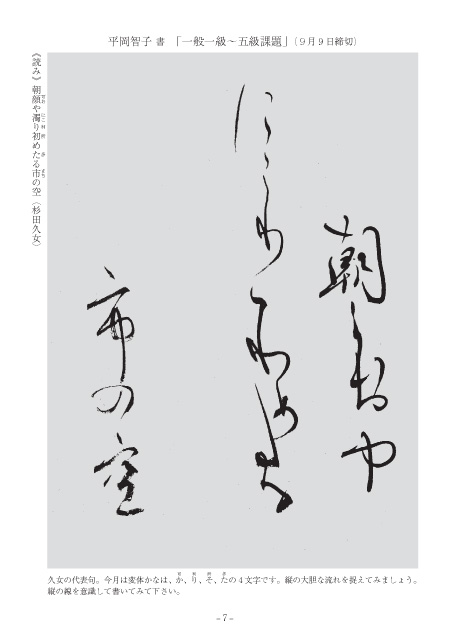 平岡智子 書 「一般一級～五級課題」(9月9日締切)
《読み》朝顔や濁り初めたる市の空（杉田久女）
朝可おや
にこ利所め多る
市の空
久女の代表句。今月は変体かなは、か、り、そ、たの4文字です。縦の大胆な流れを捉えてみましょう。
縦の線を意識して書いてみて下さい。
- 7 -